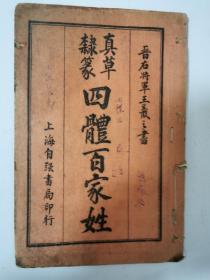 晉右將軍王羲之書
真草
隸篆
四體百家姓
上海自强書局印行